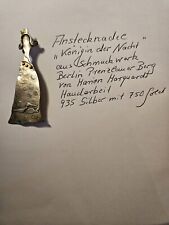 Anstecknadel
"Königin der Nacht"
aus Schmuckwerk
Berlin Prenzlauer Berg
von Harren Marquardt
Handarbeit
935 Silber mit 750 Gold